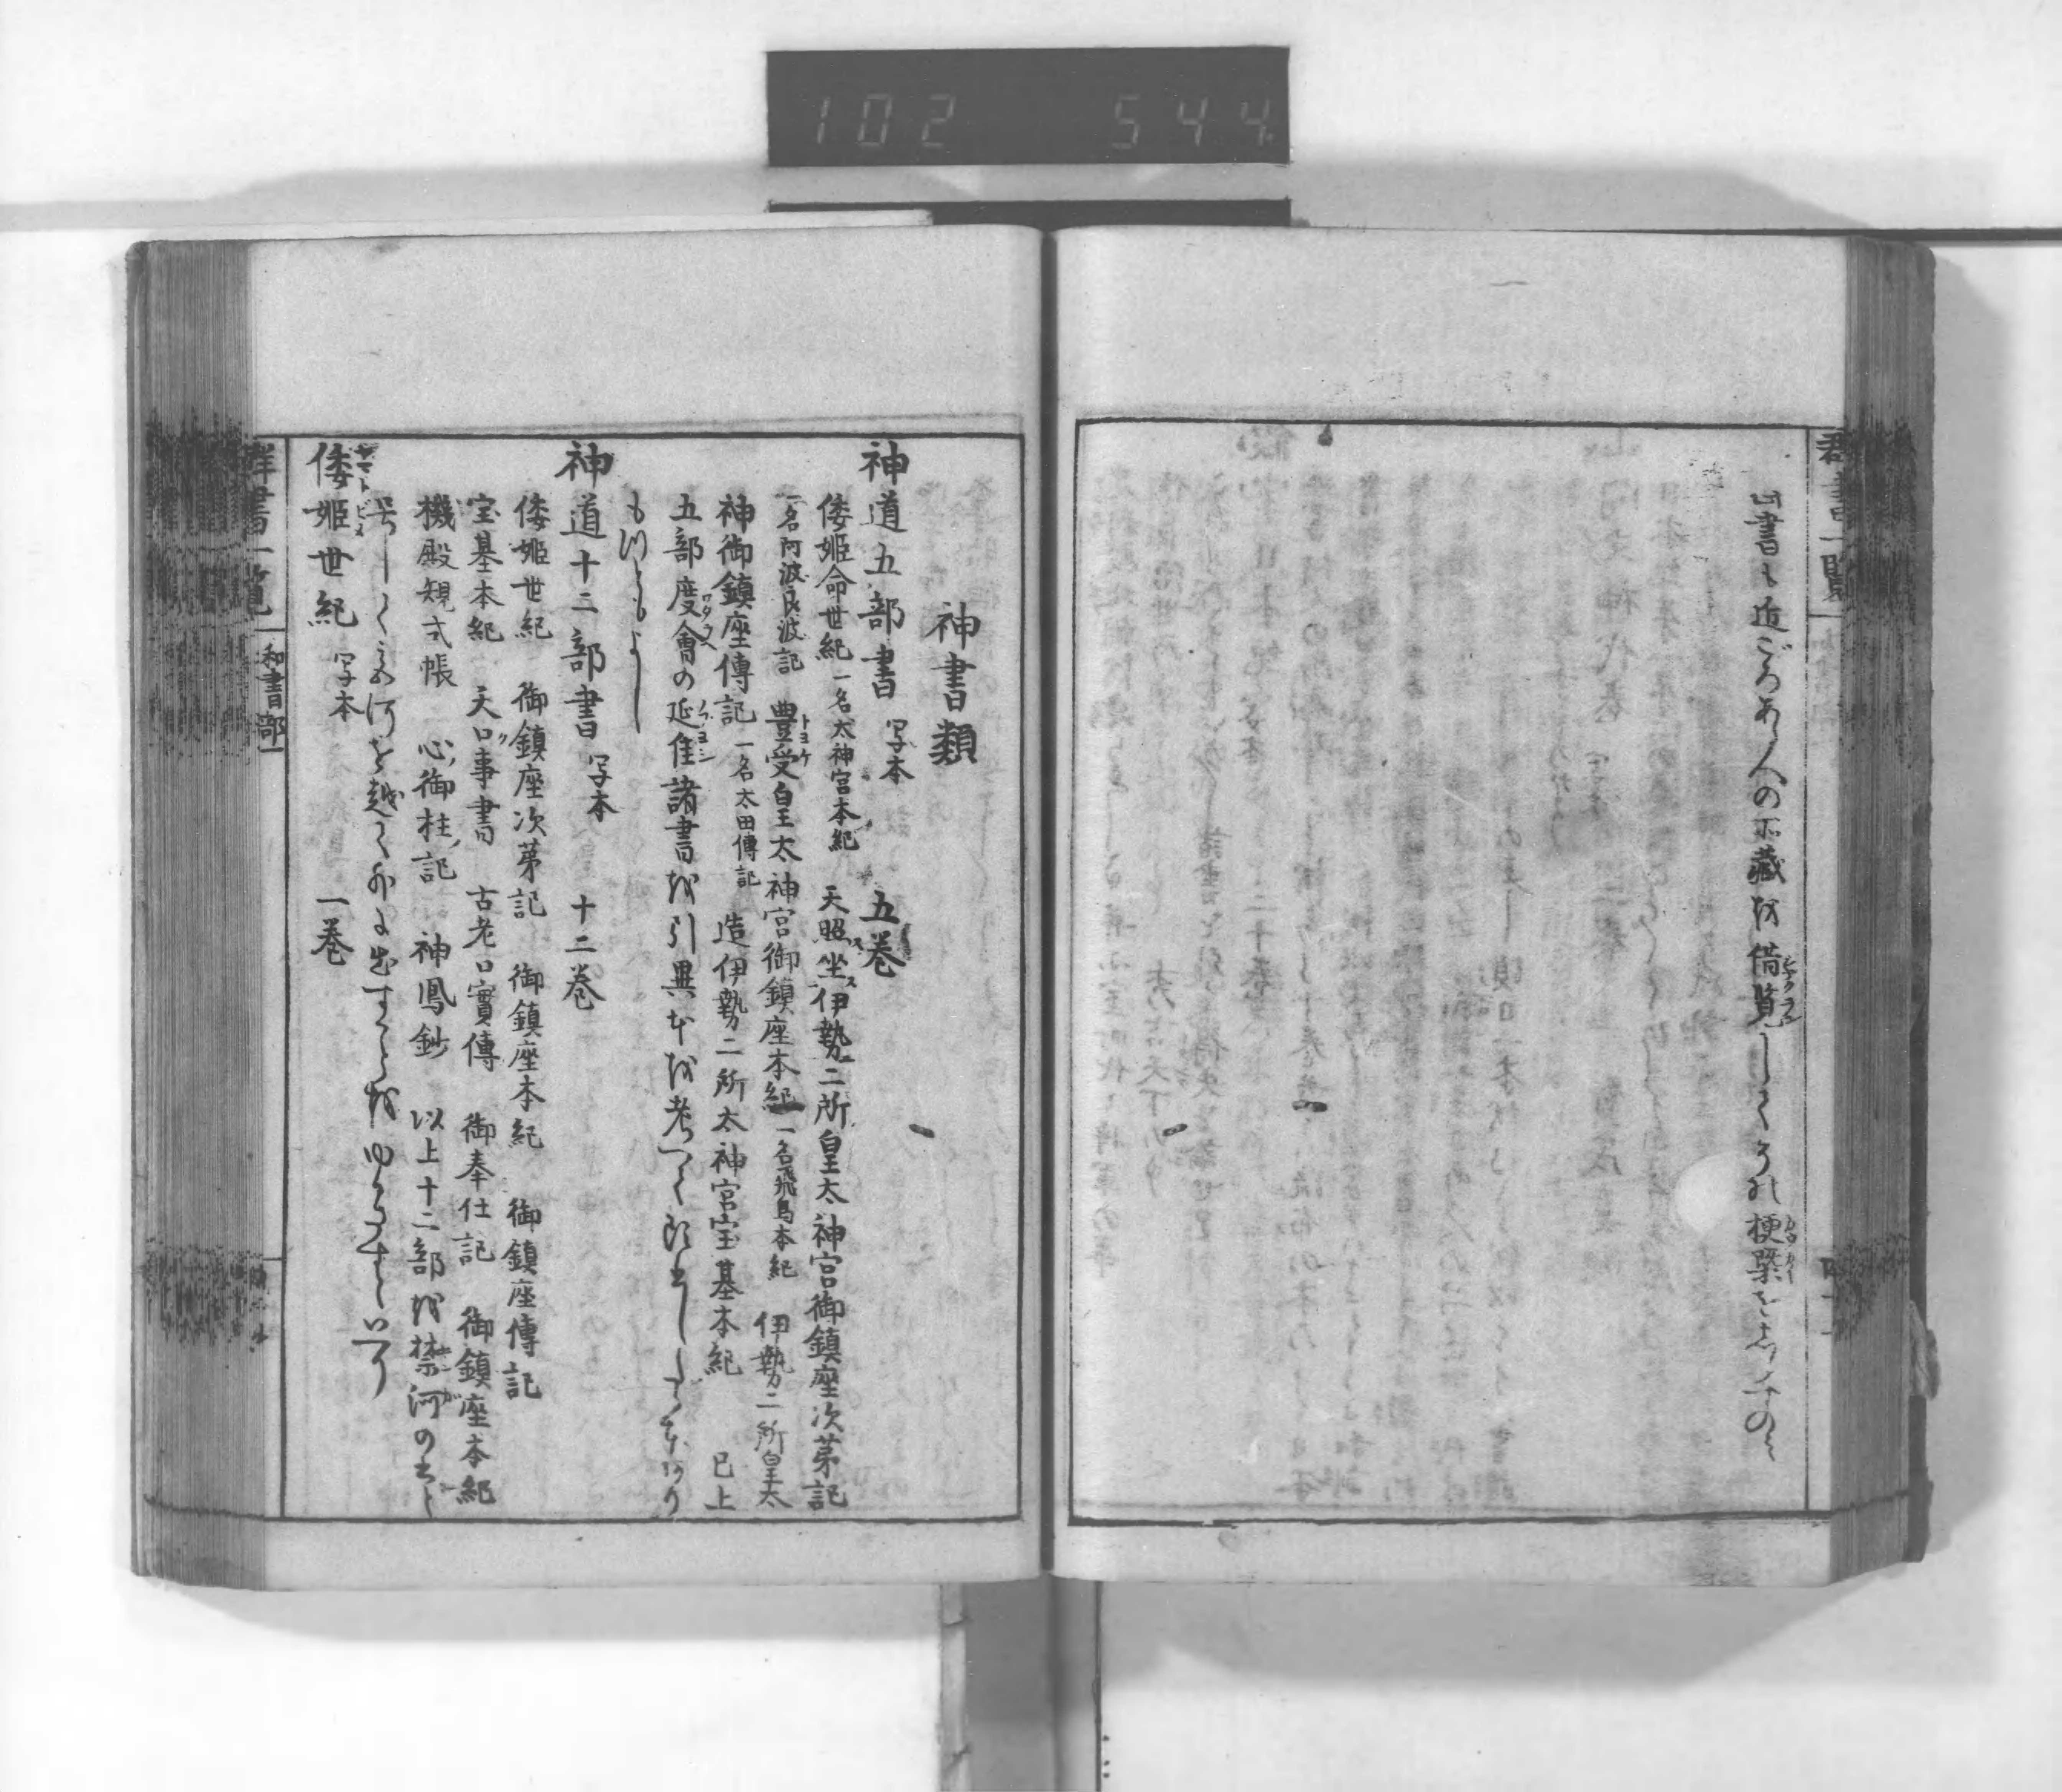 102 544
群書一覧
此書も近ごろある人の所藏を借覧してその梗槩をしるすのミ
神書類
神道五部書 写本 五巻
倭姫命世紀 一名太神宮本紀 天照坐伊勢二所皇太神宮御鎮座次第記
一名阿波良波記 豊受皇太神宮御鎮座本紀 一名飛鳥本紀 伊勢二所皇太
神御鎮座傳記 一名太田傳記 造伊勢二所太神宮宝基本紀 已上
五部度會の延佳諸書を引異本を考へて
神道十二部書 写本 十二巻
倭姫世紀 御鎮座次第記 御鎮座本紀 御鎮座傳記
宝基本紀 天口事書 古老口實傳 御奉仕記 御鎮座本紀
機殿規式帳 心御柱記 神鳳鈔 以上十二部を禁河の書と
号してこの河を越て外に出すことをゆるさずといへり
倭姫世紀 写本 一巻
群書一覧
和書部一